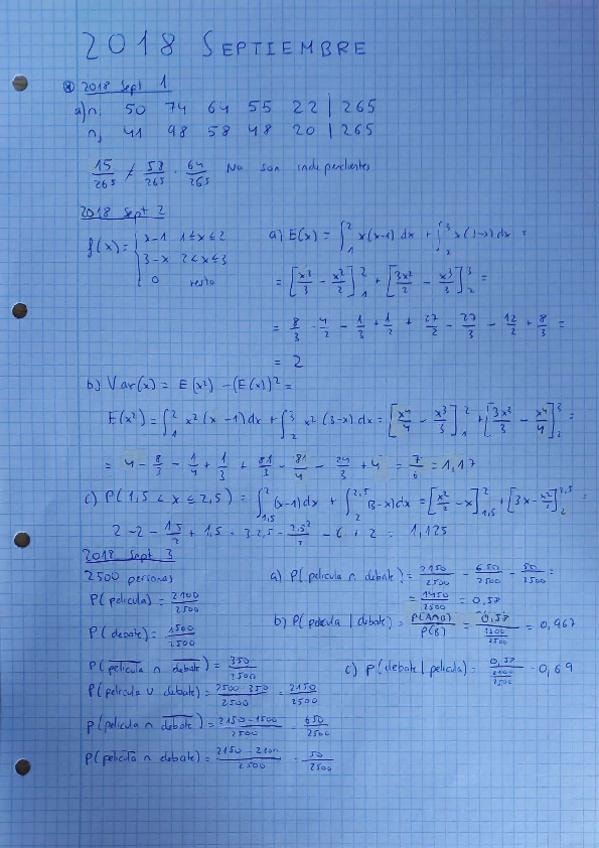 2018 SEPTIEMBRE
2018 Sept 1
a) nᵢ 50 74 64 55 22 | 265
nⱼ 41 98 58 48 20 | 265
15/265 ≠ 58/265 · 64/265 No son independientes
2018 Sept 2
f(x) = { x-1 1≤x≤2
3-x 2<x≤3
0 resto
a) E(x) = ∫₁² x(x-1) dx + ∫₂³ x(3-x) dx =
= [x³/3 - x²/2]₁² + [3x²/2 - x³/3]₂³ =
= 8/3 - 4/2 - 1/3 + 1/2 + 27/2 - 27/3 - 12/2 + 8/3 =
= 2
b) Var(x) = E(x²) - (E(x))² =
E(x²) = ∫₁² x²(x-1) dx + ∫₂³ x²(3-x) dx = [x⁴/4 - x³/3]₁² + [3x³/3 - x⁴/4]₂³ =
= 4 - 8/3 - 1/4 + 1/3 + 81/3 - 81/4 - 24/3 + 4 = 7/6 = 1,17
c) P(1,5 < x ≤ 2,5) = ∫₁,₅² (x-1) dx + ∫₂²,⁵ (3-x) dx = [x²/2 - x]₁,₅² + [3x - x²/2]₂²,⁵ =
2 - 2 - 1,5/2 + 1,5 + 3·2,5 - 2,5²/2 - 6 + 2 = 1,125
2018 Sept 3
2500 personas
P(película) = 2100/2500
P(debate) = 1500/2500
P(película ∩ debate) = 350/2500
P(película ∪ debate) = 2500-350/2500 = 2150/2500
P(película ∩ debate) = 2150-1500/2500 = 650/2500
P(película ∩ debate) = 2150-2100/2500 = 50/2500
a) P(película ∩ debate) = 2150/2500 - 650/2500 - 50/2500 =
= 1450/2500 = 0,58
b) P(película | debate) = P(A∩B)/P(B) = 0,58/(1500/2500) = 0,967
c) P(debate | película) = 0,58/(2100/2500) = 0,69